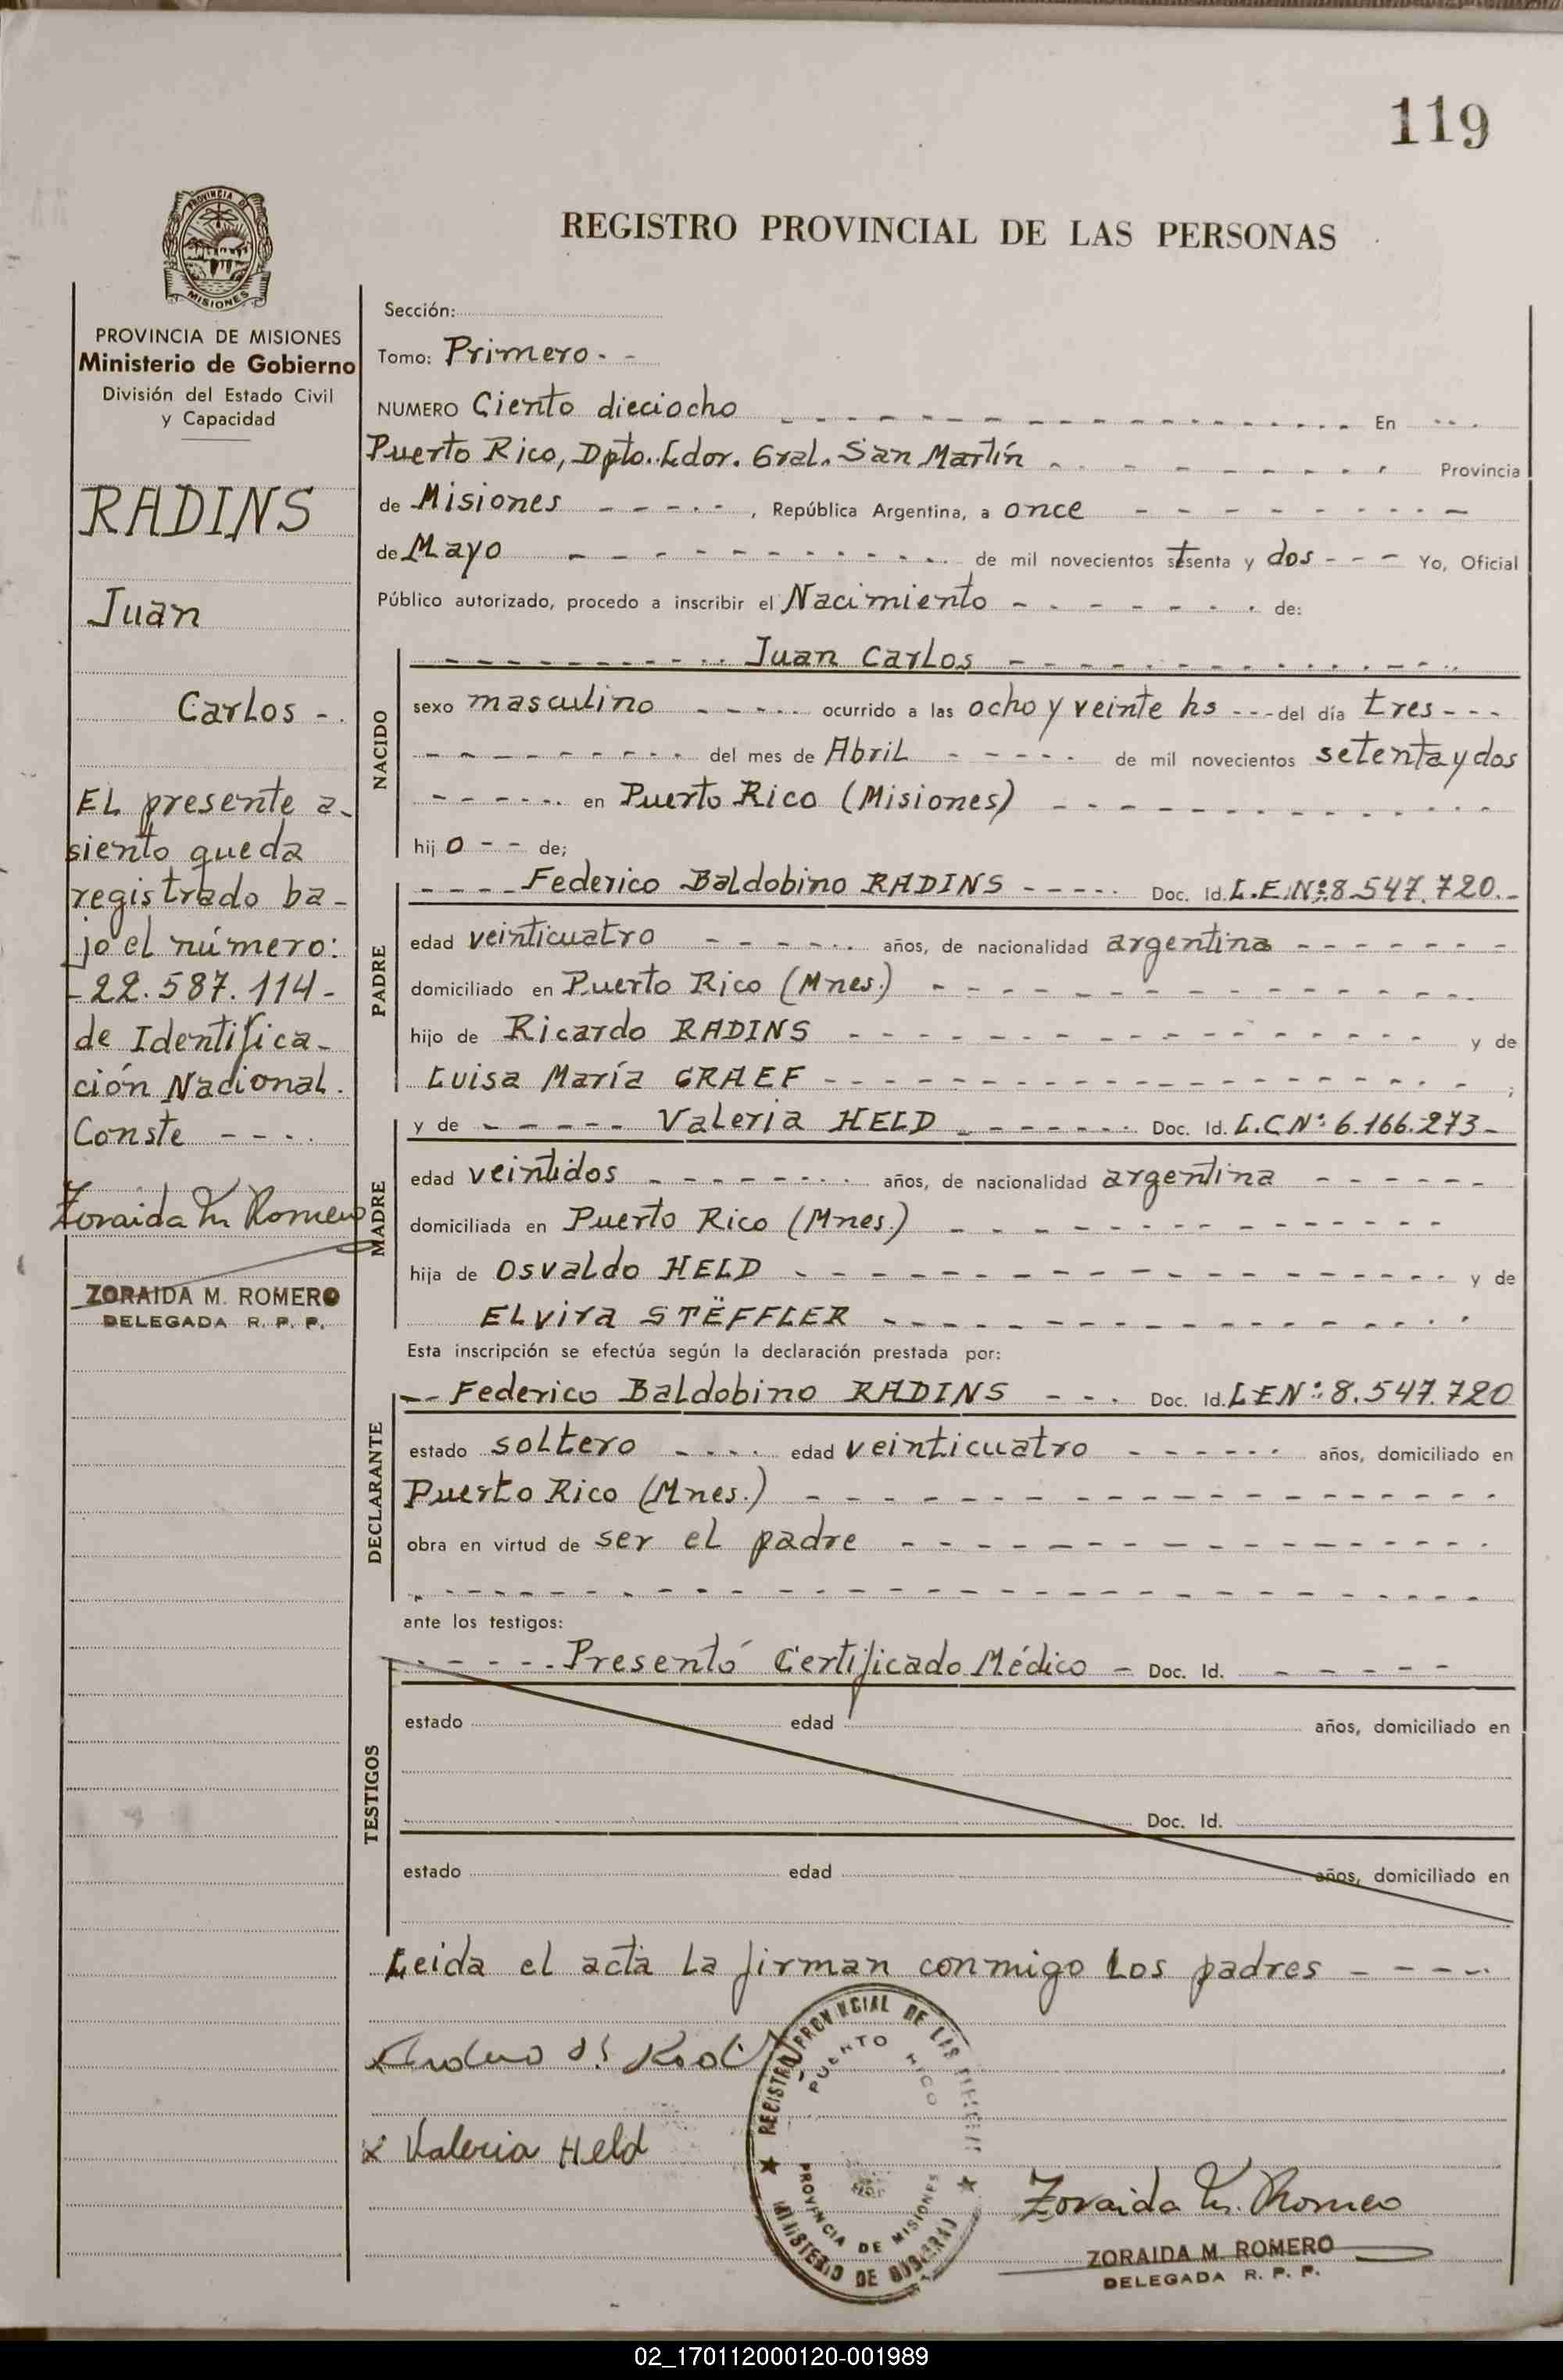 119
PROVINCIA DE
MISIONES
REGISTRO PROVINCIAL DE LAS PERSONAS
PROVINCIA DE MISIONES
Ministerio de Gobierno
División del Estado Civil
y Capacidad
RADINS
Juan
Carlos -.
EL presente a-
siento queda
registrado ba-
jo el número:
-22.587.114-
de Identifica-
ción Nacional.
Conste - - - .
Zoraida M. Romero
ZORAIDA M. ROMERO
DELEGADA R. P. P.
Sección:
Tomo: Primero - -
NUMERO Ciento dieciocho - - - En - - -
Puerto Rico, Dpto. Ldor. Gral. San Martín - - - Provincia
de Misiones - - - , República Argentina, a once - - -
de Mayo - - - de mil novecientos setenta y dos - - - Yo, Oficial
Público autorizado, procedo a inscribir el Nacimiento - - - de:
NACIDO
- - - Juan Carlos - - -
sexo masculino - - - ocurrido a las ocho y veinte hs - - - del día tres - - -
- - - del mes de Abril - - - de mil novecientos setenta y dos
- - - en Puerto Rico (Misiones) - - -
hijo - - de;
PADRE
- - - Federico Baldobino RADINS - - - Doc. Id. L.E.Nº:8.547.720.-
edad veinticuatro - - - años, de nacionalidad argentina - - -
domiciliado en Puerto Rico (Mnes.) - - -
hijo de Ricardo RADINS - - - y de
Luisa María GRAEF - - - ;
MADRE
y de - - - Valeria HELD - - - Doc. Id. L.C Nº: 6.166.273-
edad veintidos - - - años, de nacionalidad argentina - - -
domiciliada en Puerto Rico (Mnes.) - - -
hija de Osvaldo HELD - - - y de
Elvira STËFFLER - - -
Esta inscripción se efectúa según la declaración prestada por:
DECLARANTE
-- Federico Baldobino RADINS - - - Doc. Id. L.E Nº: 8.547.720
estado soltero - - - edad veinticuatro - - - años, domiciliado en
Puerto Rico (Mnes.) - - -
obra en virtud de ser el padre - - -
ante los testigos:
TESTIGOS
- - - Presentó Certificado Médico - Doc. Id. - - -
estado edad años, domiciliado en
Doc. Id.
estado edad años, domiciliado en
Leida el acta la firman conmigo los padres - - -
x Valeria Held
REGISTRO PROVINCIAL DE LAS
PUERTO RICO
PROVINCIA DE MISIONES
MINISTERIO DE
Zoraida M. Romero
ZORAIDA M. ROMERO
DELEGADA R. P. P.
02_170112000120-001989